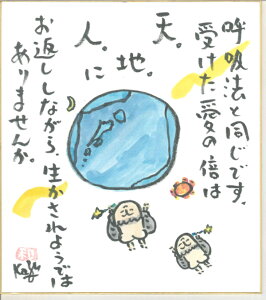 呼吸法と同じです。
受けた愛の倍は
天。
地。
人。に
お返ししながら生かされようでは
ありませんか。